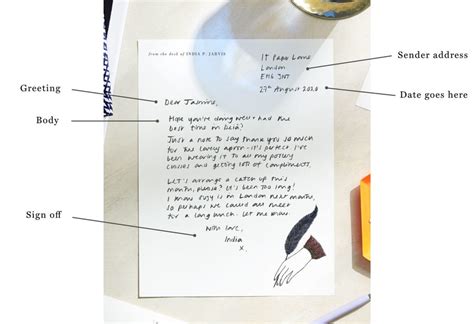 from the desk of INDIA P. JARVIS
17 Paper Lane
London
EM6 3NT
29th August 2020
Sender address
Date goes here
Greeting
Dear Jasmine,
Body
Hope you're doing well + had the
best time on
Just a note to say thank you so much
for the lovely apron - it's perfect, I've
been wearing it to all my pottery
classes and getting lots of compliments.
Let's arrange a catch up this
month, please? It's been too long!
I know is in London next month,
so perhaps we could all meet
for a long lunch. Let me know.
Sign off
With love,
India
x